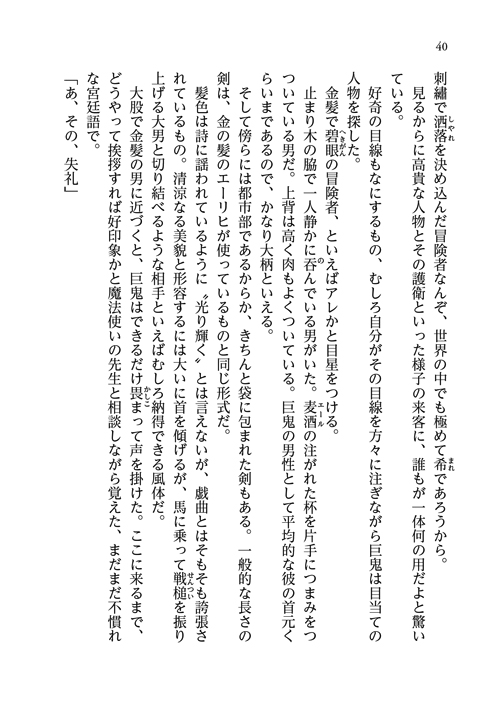 40
刺繡で洒落を決め込んだ冒険者なんぞ、世界の中でも極めて希であろうから。
見るからに高貴な人物とその護衛といった様子の来客に、誰もが一体何の用だよと驚い
ている。
好奇の目線もなにするもの、むしろ自分がその目線を方々に注ぎながら巨鬼は目当ての
人物を探した。
金髪で碧眼の冒険者、といえばアレかと目星をつける。
止まり木の脇で一人静かに吞んでいる男がいた。麦酒の注がれた杯を片手につまみをつ
ついている男だ。上背は高く肉もよくついている。巨鬼の男性として平均的な彼の首元く
らいまであるので、かなり大柄といえる。
そして傍らには都市部であるからか、きちんと袋に包まれた剣もある。一般的な長さの
剣は、金の髪のエーリヒが使っているものと同じ形式だ。
髪色は詩に謡われているように〝光り輝く〟とは言えないが、戯曲とはそもそも誇張さ
れているもの。清涼なる美貌と形容するには大いに首を傾げるが、馬に乗って戦槌を振り
上げる大男と切り結べるような相手といえばむしろ納得できる風体だ。
大股で金髪の男に近づくと、巨鬼はできるだけ畏まって声を掛けた。ここに来るまで、
どうやって挨拶すれば好印象かと魔法使いの先生と相談しながら覚えた、まだまだ不慣れ
な宮廷語で。
「あ、その、失礼」